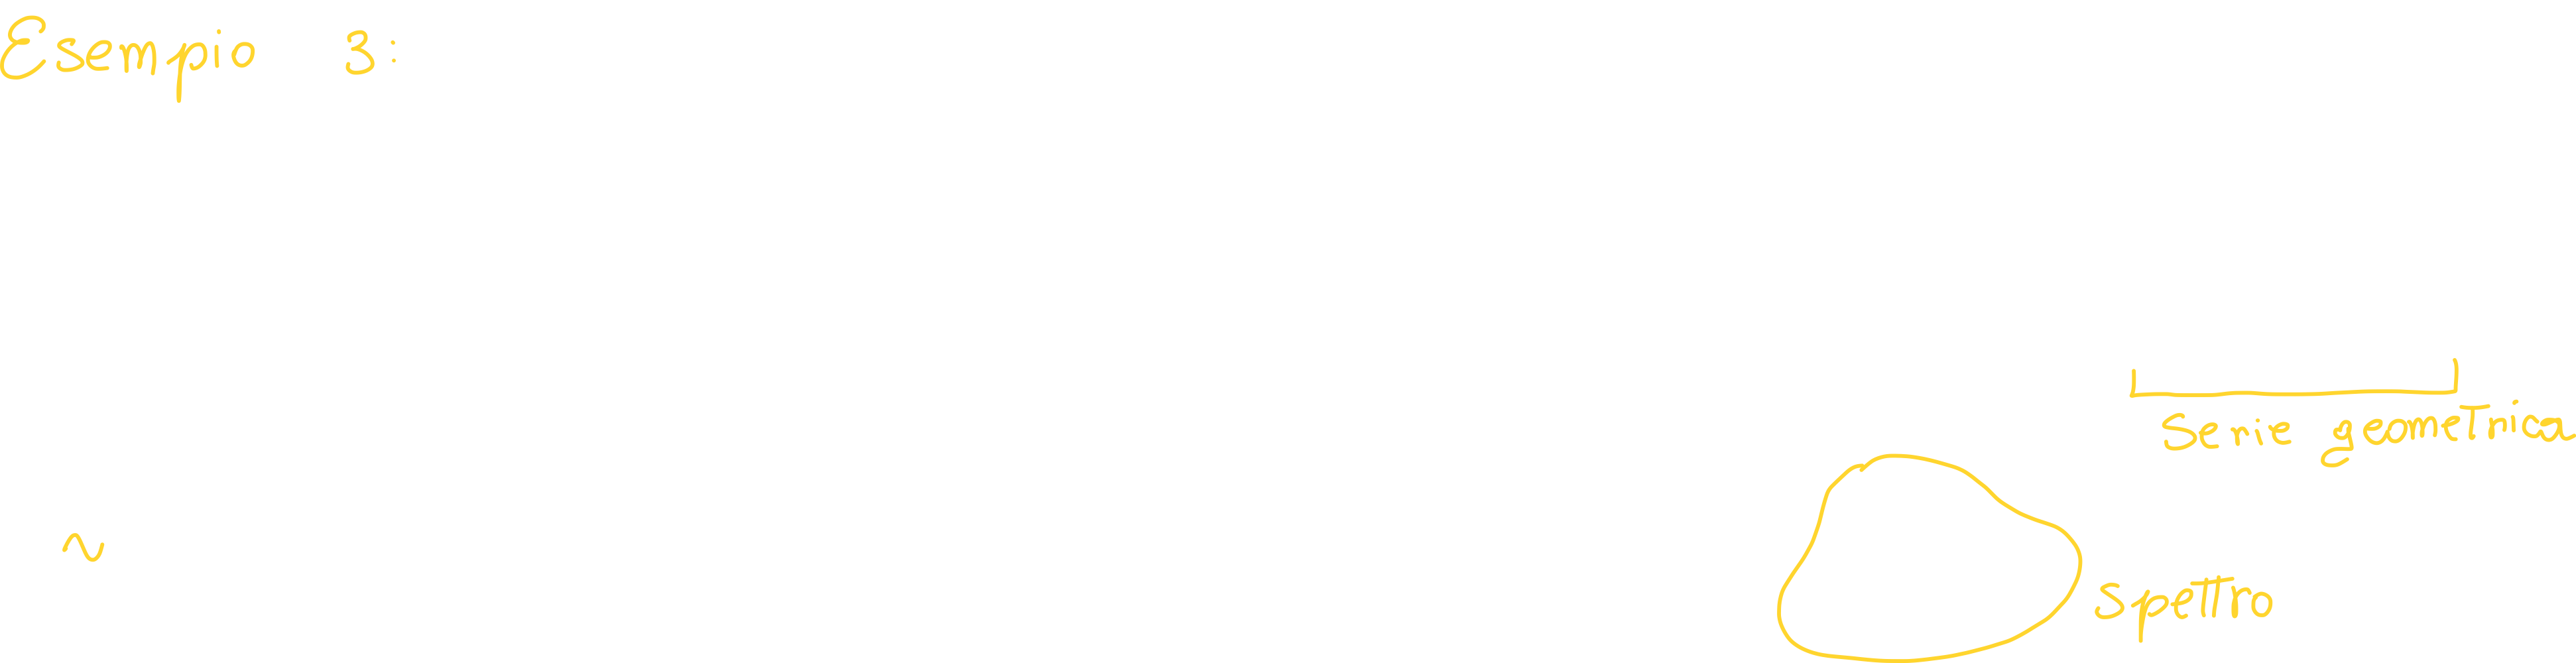 Esempio 3:
Serie geometrica
~
spettro